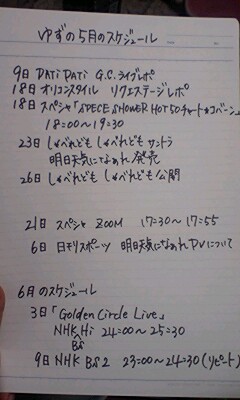 ゆずの5月のスケジュール
9日 DATi DATi G.C.ライブレポ
18日 オリコンスタイル リクエステージレポ
18日 スペシャ「SPECE SHOWER HOT50チャートカバーン」
18=00〜19=30
23日 しゃべれども しゃべれども サントラ
明日天気になぁれ 発売
26日 しゃべれども しゃべれども 公開
21日 スペシャ ZOOM 17=30〜17=55
6日 日刊スポーツ 明日天気になぁれPVについて
6月のスケジュール
3日「Golden Circle Live」
NHK Hi 24=00〜25=30
BS
9日 NHK BS2 23=00〜24=30(リピート)